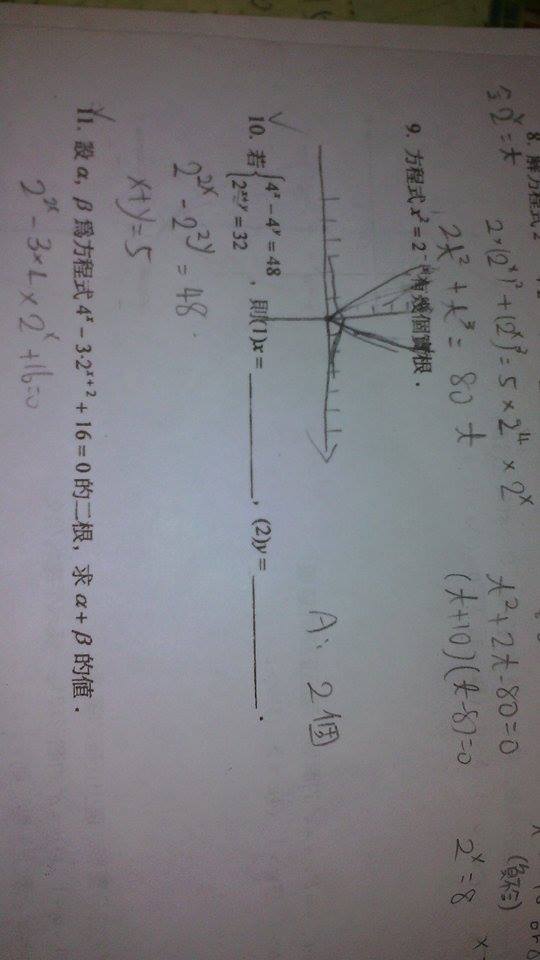 8. 解方程式 2
令2ˣ=t
2×(2ˣ)²+(2ˣ)³=5×2⁴×2ˣ
t²+2t-80=0
2t²+t³=80t
(t+10)(t-8)=0
(負不合)
2ˣ=8
9. 方程式 x²=2 有幾個實根.
A: 2個
10. 若 {4ˣ-4ʸ=48, 則(1)x=__________, (2)y=__________.
2ˣ⁺ʸ=32
2²ˣ-2²ʸ=48.
x+y=5
11. 設 α, β 為方程式 4ˣ-3·2ˣ⁺²+16=0 的二根, 求 α+β 的值.
2²ˣ-3×4×2ˣ+16=0